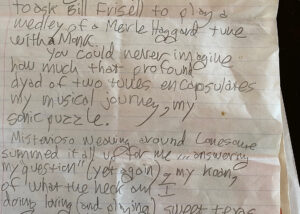 to ask Bill Frisell to play a
medley of a Merle Haggard tune
with a Monk.
You could never imagine
how much that profound
dyad of two tunes encapsulates
my musical journey, my
sonic puzzle.
Misterioso weaving around Lonesome
summed it all up for me ... answering
my question (yet again), my koan,
of what the heck am I
doing loving (and playing) sweet texas